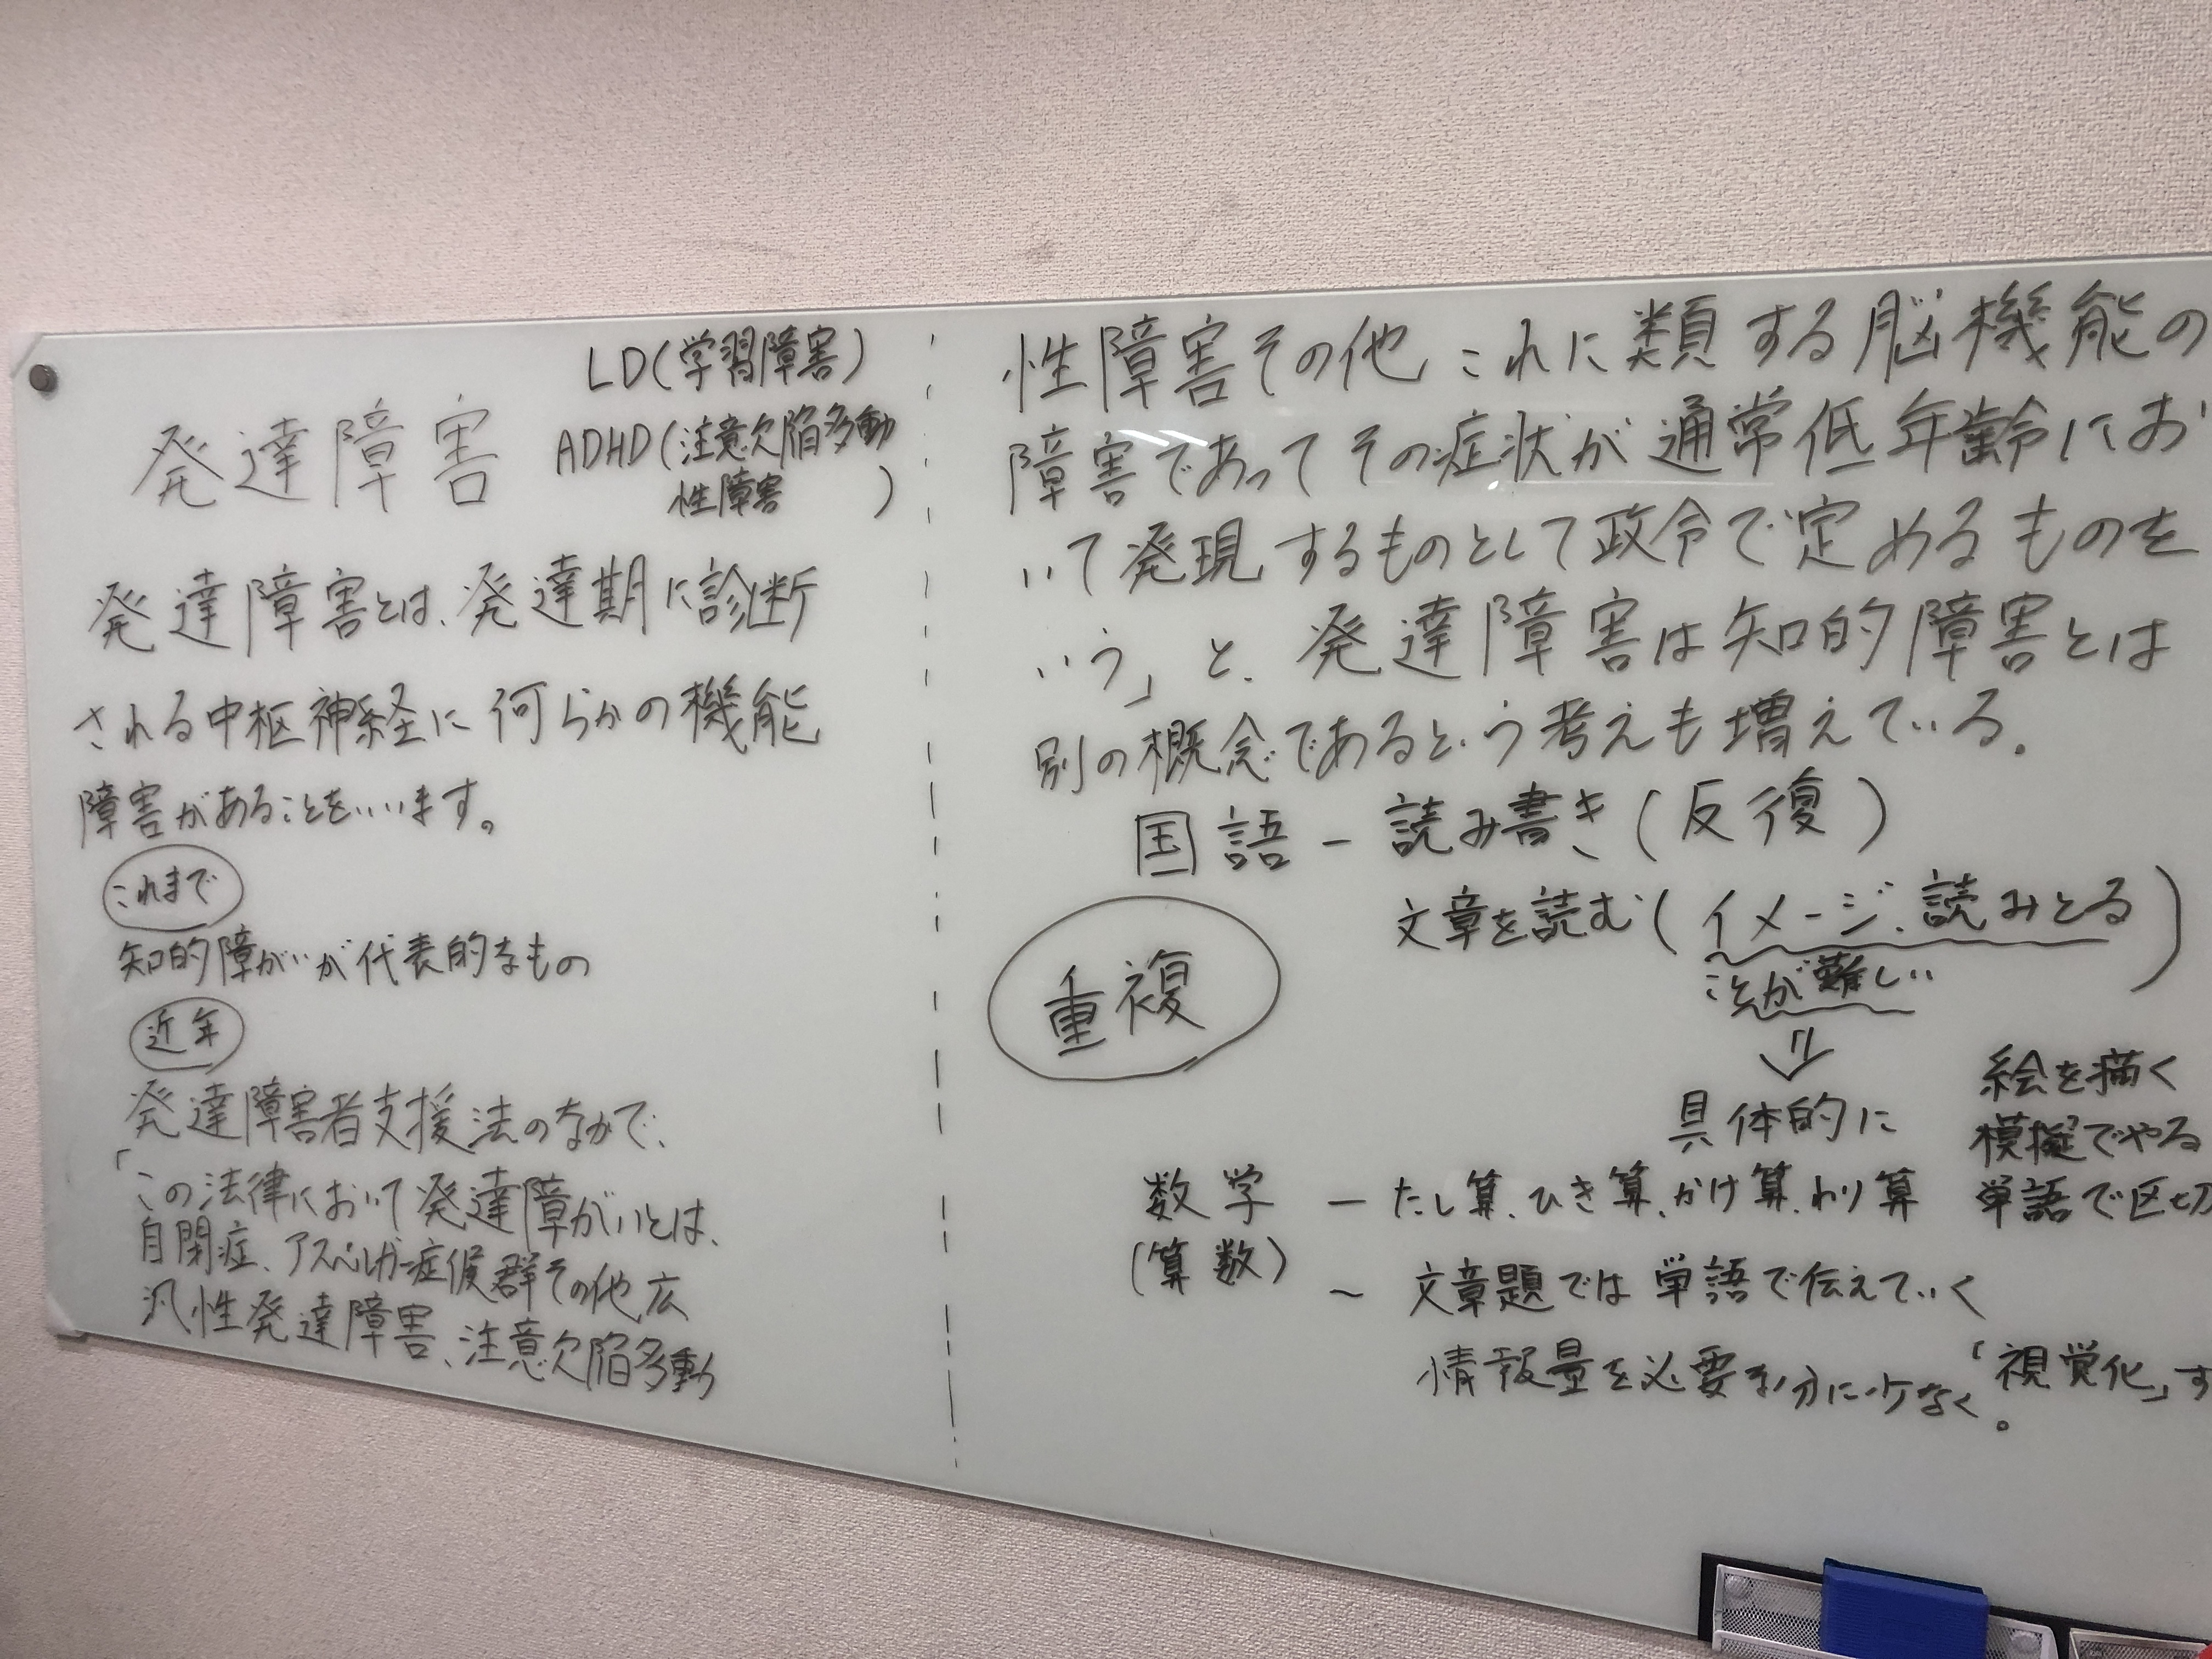 発達障害
LD(学習障害)
ADHD(注意欠陥多動
性障害)
発達障害とは、発達期に診断
される中枢神経に何らかの機能
障害があることをいいます。
これまで
知的障がいが代表的なもの
近年
発達障害者支援法のなかで、
「この法律において発達障がいとは、
自閉症、アスペルガー症候群その他広
汎性発達障害、注意欠陥多動
性障害その他これに類する脳機能の
障害であってその症状が通常低年齢にお
いて発現するものとして政令で定めるものを
いう」と、発達障害は知的障害とは
別の概念であるという考えも増えている。
国語 - 読み書き(反復)
文章を読む(イメージ、読みとる
ことが難しい)
重複
具体的に
絵を描く
模擬でやる
単語で区切
数学 - たし算、ひき算、かけ算、わり算
(算数)
~ 文章題では単語で伝えていく
情報量を必要な分に少なく「視覚化」す
。